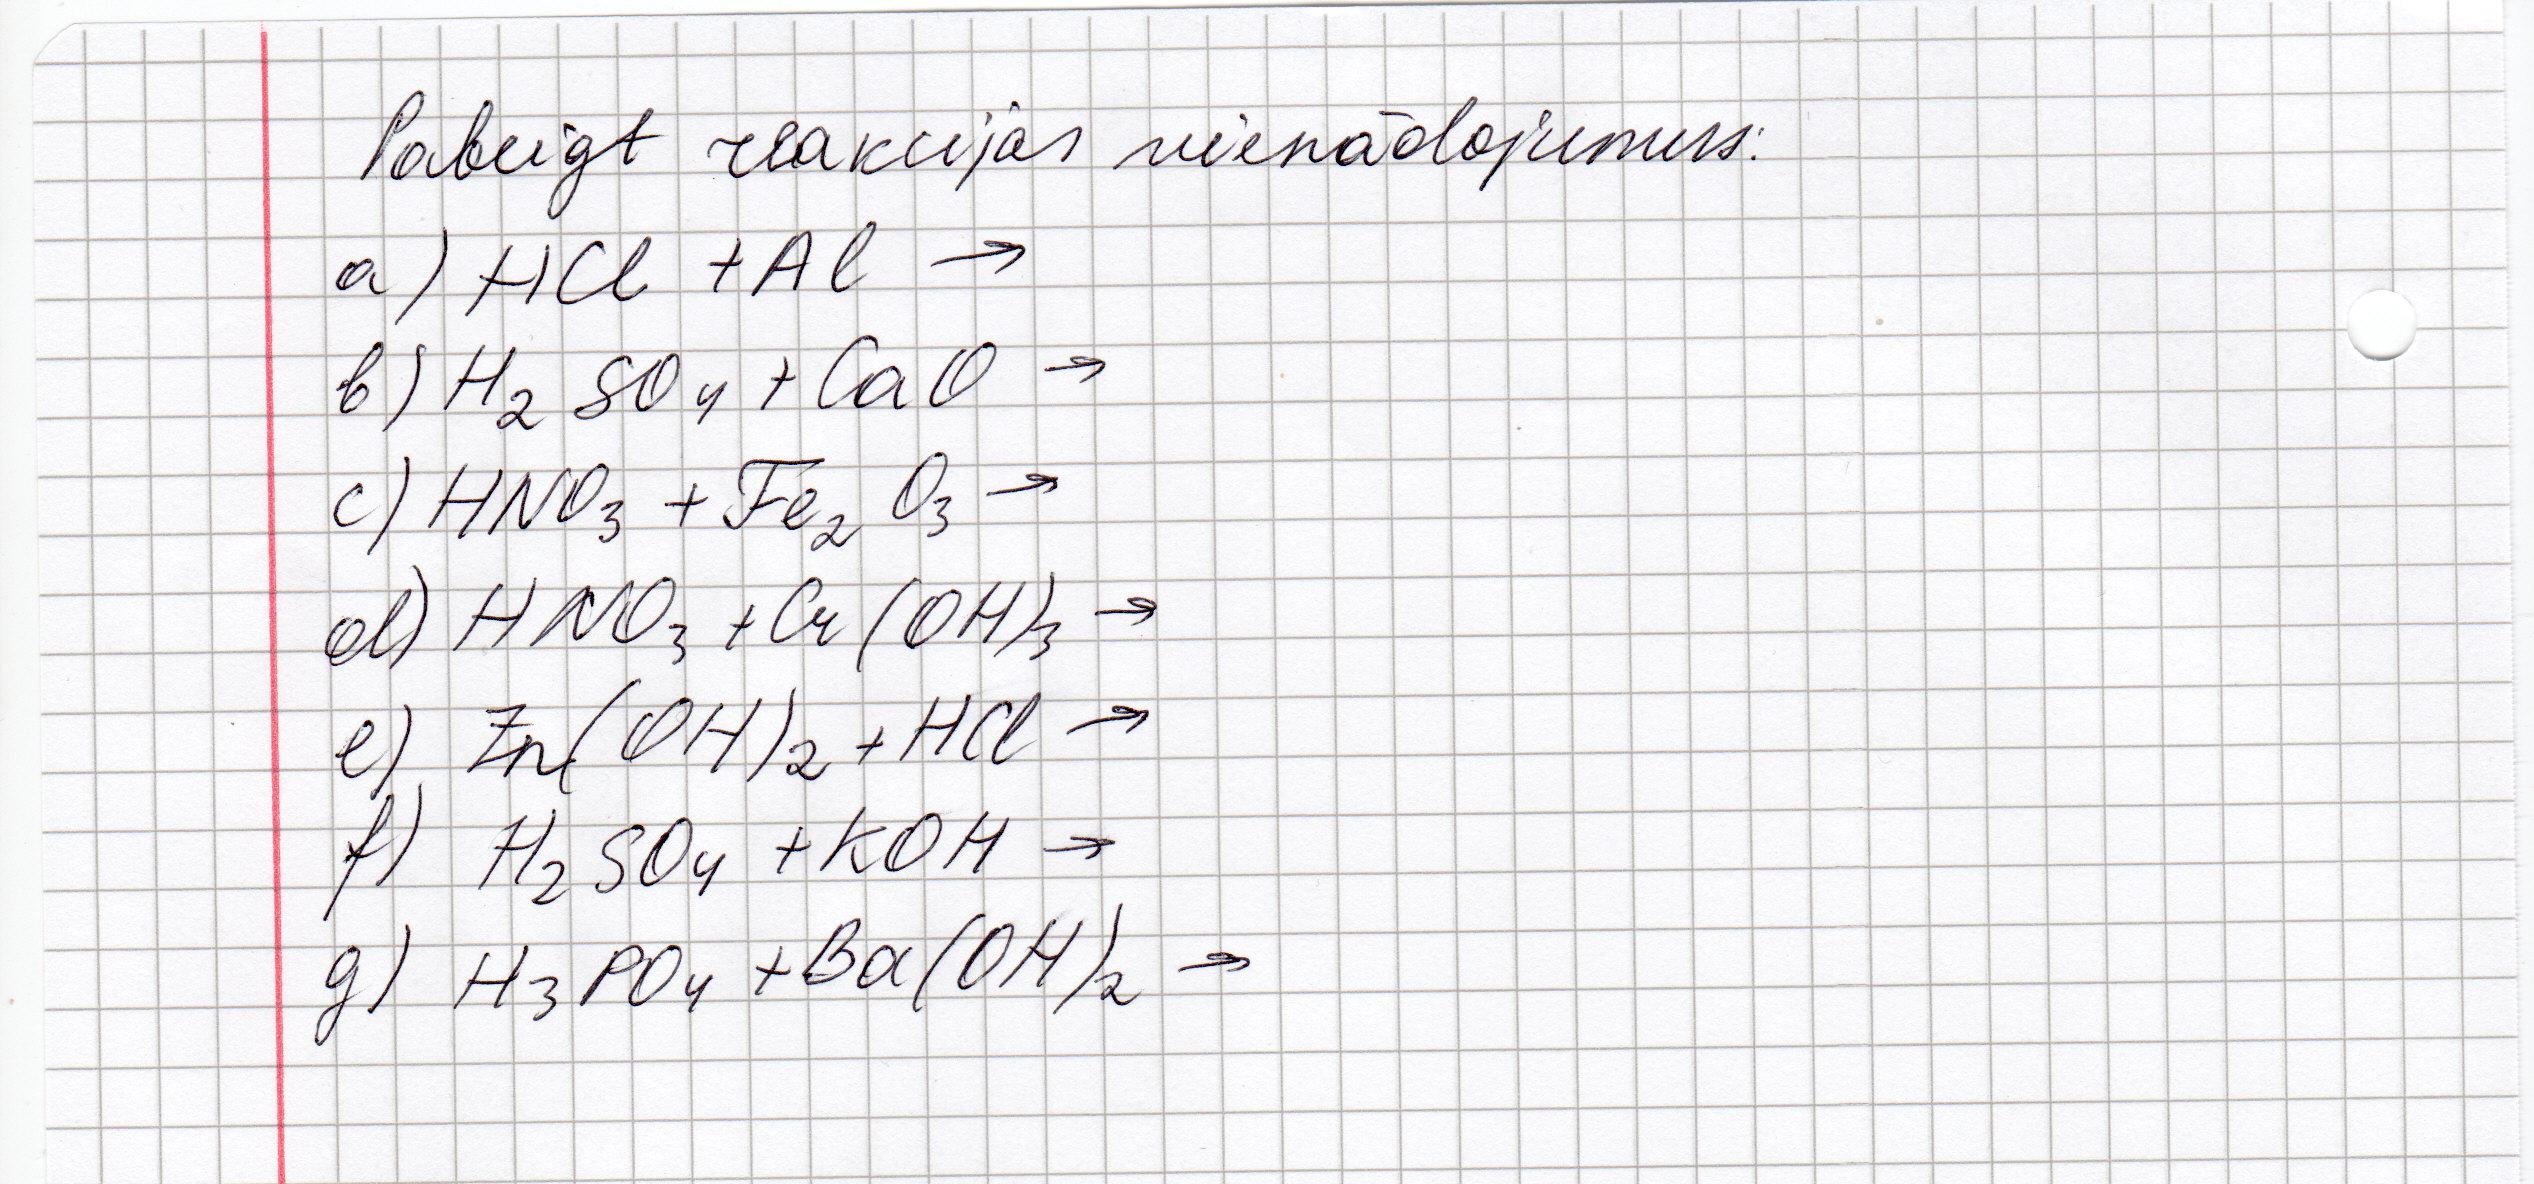 Pabeigt reakcijas vienādojumus:
a) HCl + Al →
b) H₂SO₄ + CaO →
c) HNO₃ + Fe₂O₃ →
d) HNO₃ + Cr(OH)₃ →
e) Zn(OH)₂ + HCl →
f) H₂SO₄ + KOH →
g) H₃PO₄ + Ba(OH)₂ →